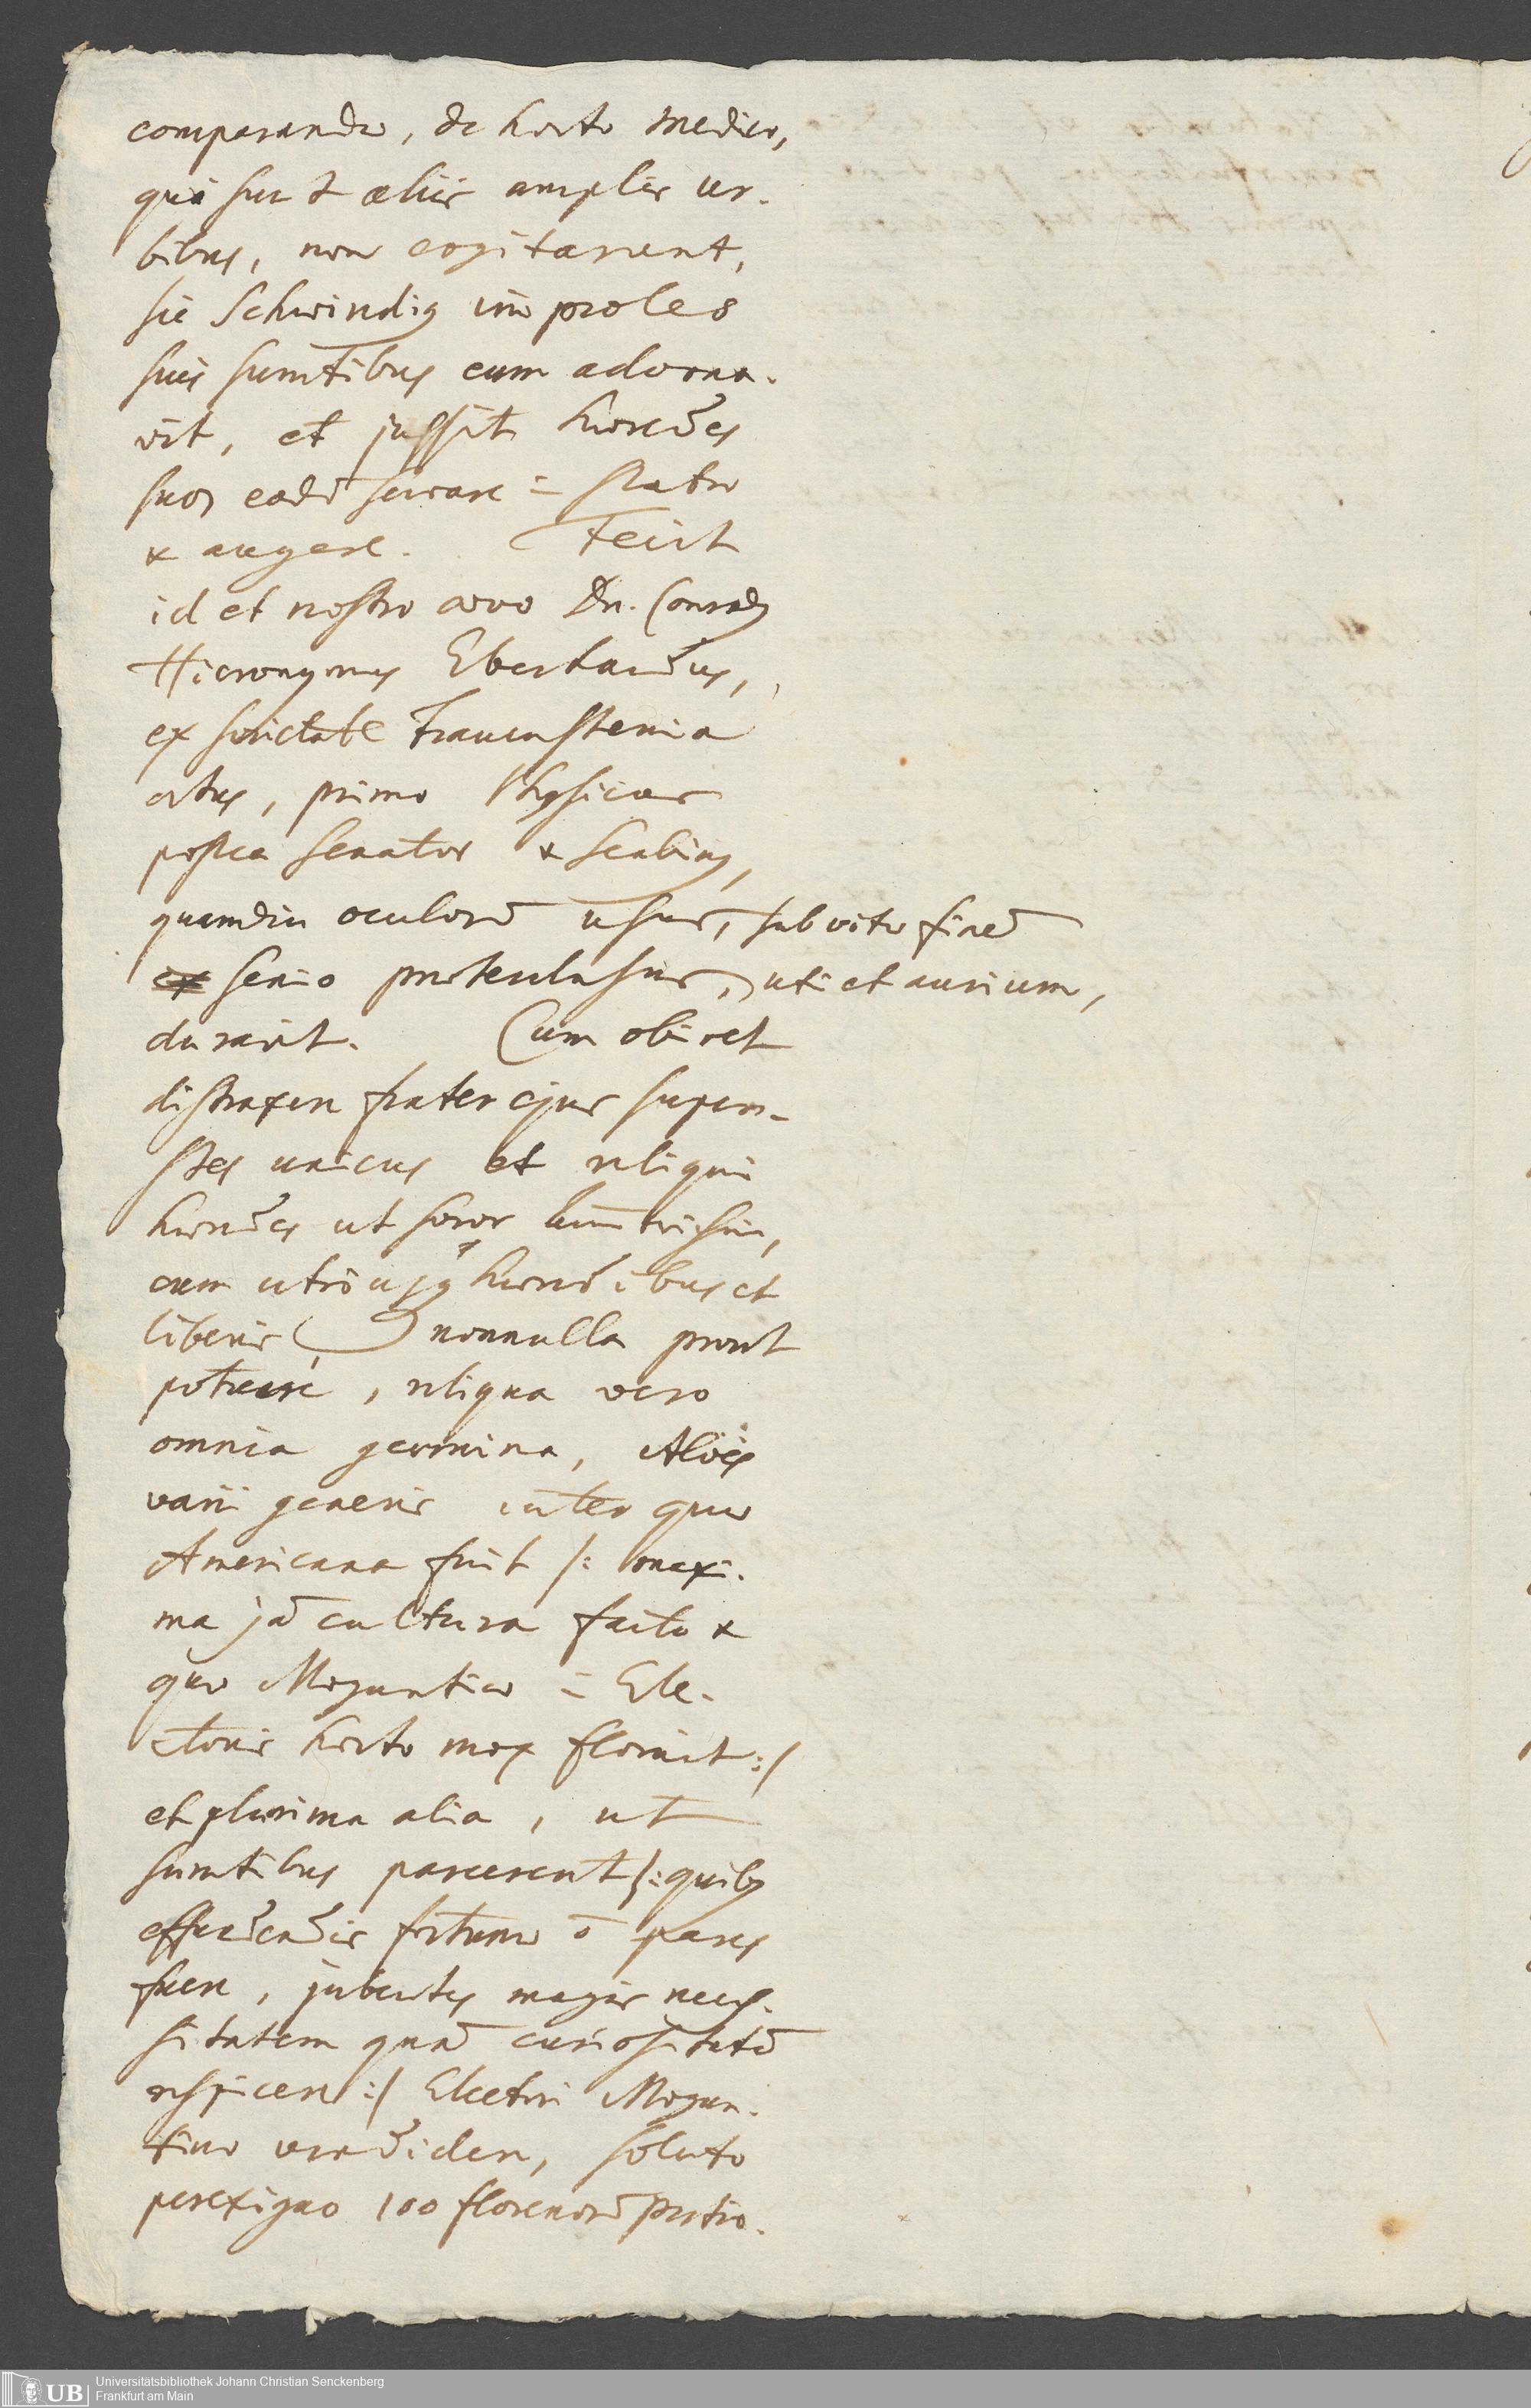 comparando, de horto Medico,
qui sunt aliis amplis ur-
bibus, non cogitarent,
sic Schwindig improles
suis sumtibus eum adorna-
vit, et jussit hæredes
suos eadem servare in statu
& augere. Fecit
id et nostro ævo Dn. Conrad9
Hieronymus Eberhardus,
ex societate Frauensteinia
ortus, primo Physicus
postea Senator & Scabin9,
quamdiu oculorū usus, sub vitæ finē
senio protenta, uti et aurium,
duravit. Cum obiret
distraxere frater ejus super-
stes unicus et reliqui
hæredes ut soror
cum utriusq hæredibus et
liberis, nonnulla prout
potuere, reliqua vero
omnia germina, Aloës
varii generis inter quæ
Americana fuit /: maxi-
ma jā cultura facta &
quæ Moguntiæ in Ele-
ctoris horto mox floruit :/
et plurima alia, ut
sumtibus parcerent /: quib9
effundendis fortunæ ō pares
fuere, jubentes magis neces-
sitatem quā curiositatē
respicere :/ Electori Mogun-
tino vendidere, soluto
perexiguo 100 florenorū pretio.
Universitätsbibliothek Johann Christian Senckenberg
Frankfurt am Main
UB